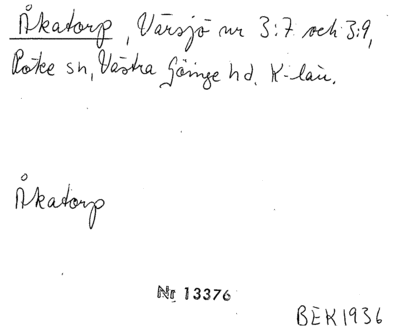 Åkatorp, Värsjö nr 3:7 och 3:9,
Röke sn, Västra Göinge hd. K-län.
Åkatorp
Nr 13376
BEK 1936